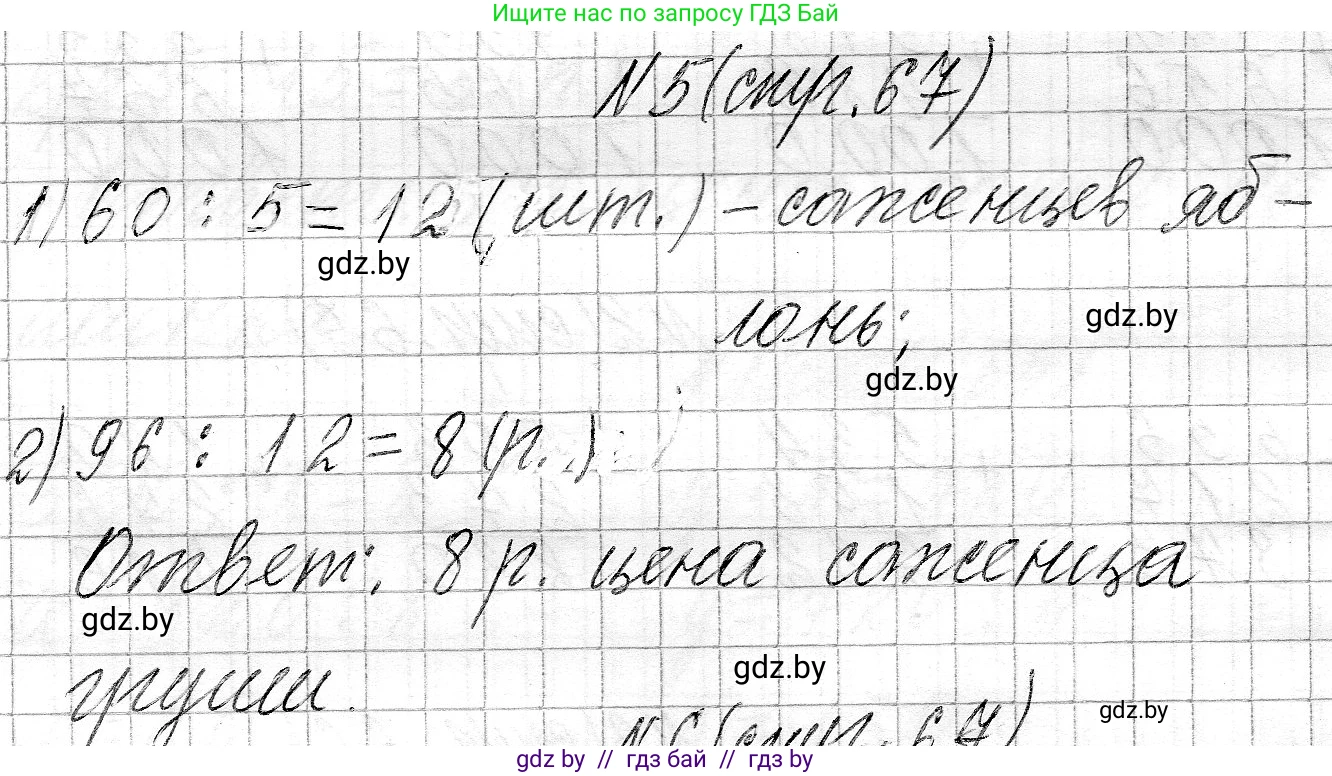 Ищите нас по запросу ГДЗ Бай
N5 (стр. 67)
1) 60 : 5 = 12 (шт.) - саженцев яб-
gdz.by
лонь;
gdz.by
gdz.by
2) 96 : 12 = 8 (р.)
Ответ: 8 р. цена саженца
gdz.by
груши.
gdz.by
N6 (стр. 67)
gdz.by
gdz by // гдз бай // гдз by